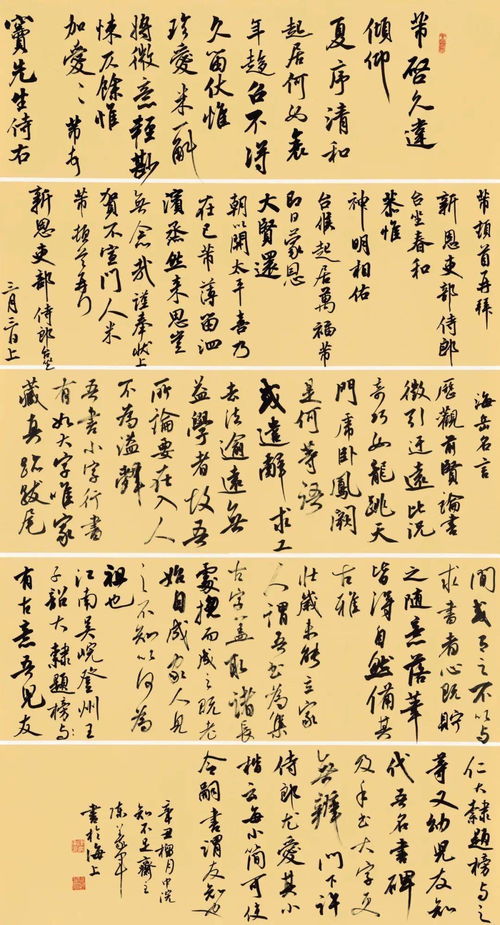 芾啓久違
傾仰
夏序清和
起居何如衰
年趨召不得
久留伏惟
珍愛米一斛
將微意輕尠
悚仄餘惟
加愛〻芾
竇先生侍右
芾頓首再拜
新恩吏部侍郎
台坐春和
恭惟
神明相佑
台候起居萬福芾
即日蒙恩
大賢還
朝以開太平喜乃
在已芾薄留泗
濱烝然来思豈
無念哉謹奉狀上
賀不宣門人米
芾頓首再拜
新恩吏部侍郎台坐
三月三日上
海岳名言
歷觀前賢論書
徵引迂遠比況
奇巧如龍跳天
門虎卧鳳闕
是何等語
或遣辭求工
去法逾遠無
益學者故吾
所論要在入人
不為溢辭
吾書小字行書
有如大字唯家
藏真跡跋尾
間或有之不以與
求書者心既貯
之隨意落筆
皆得自然備其
古雅
壯歲未能立家
人謂吾書為集
古字蓋取諸長
處揔而成之既老
始自成家人見
之不知以何為
祖也
江南吳皖登州王
子韶大隸題榜與
有古意吾兒友
仁大隸題榜與之
等又幼兒友知
代吾名書碑
及手書大字更
無辨門下許
侍郎尤愛其小
楷云每小簡可使
令嗣書謂友知也
辛丑榴月中浣
知不足齋之
陳軍
書於海上